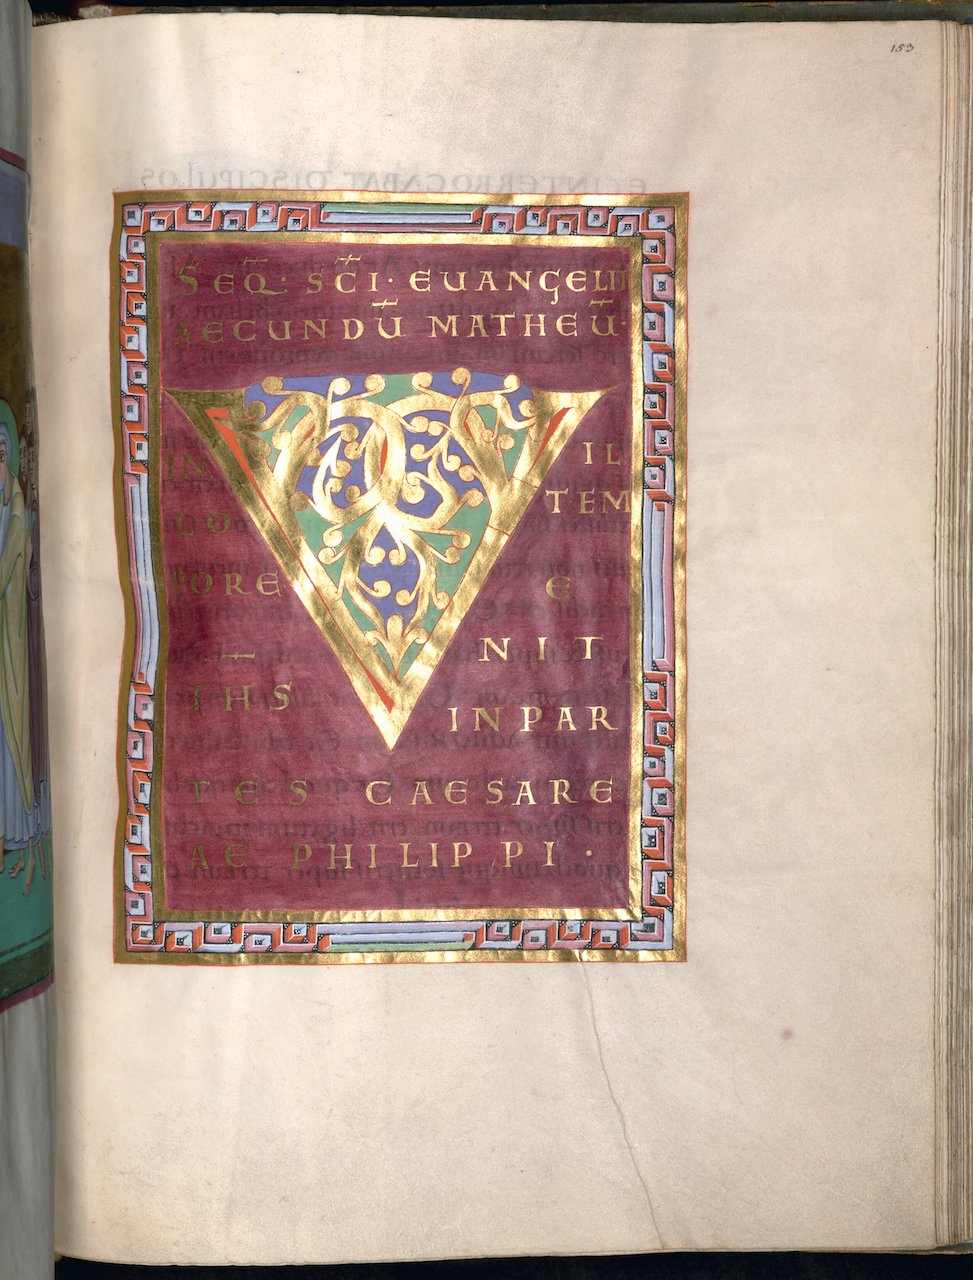 153
SEQ̄ · SC̄I · EUANGELII
SECUNDŪ MATHEŪ ·
IN IL
LO TEM
PORE V E
NIT
IH̄S INPAR
TES CAESARE
AE PHILIPPI ·